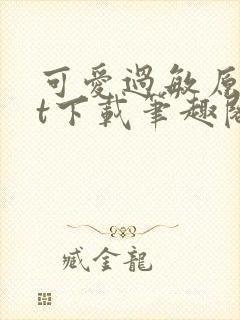 可愛過敏原
t下載筆趣閣
臧金龍